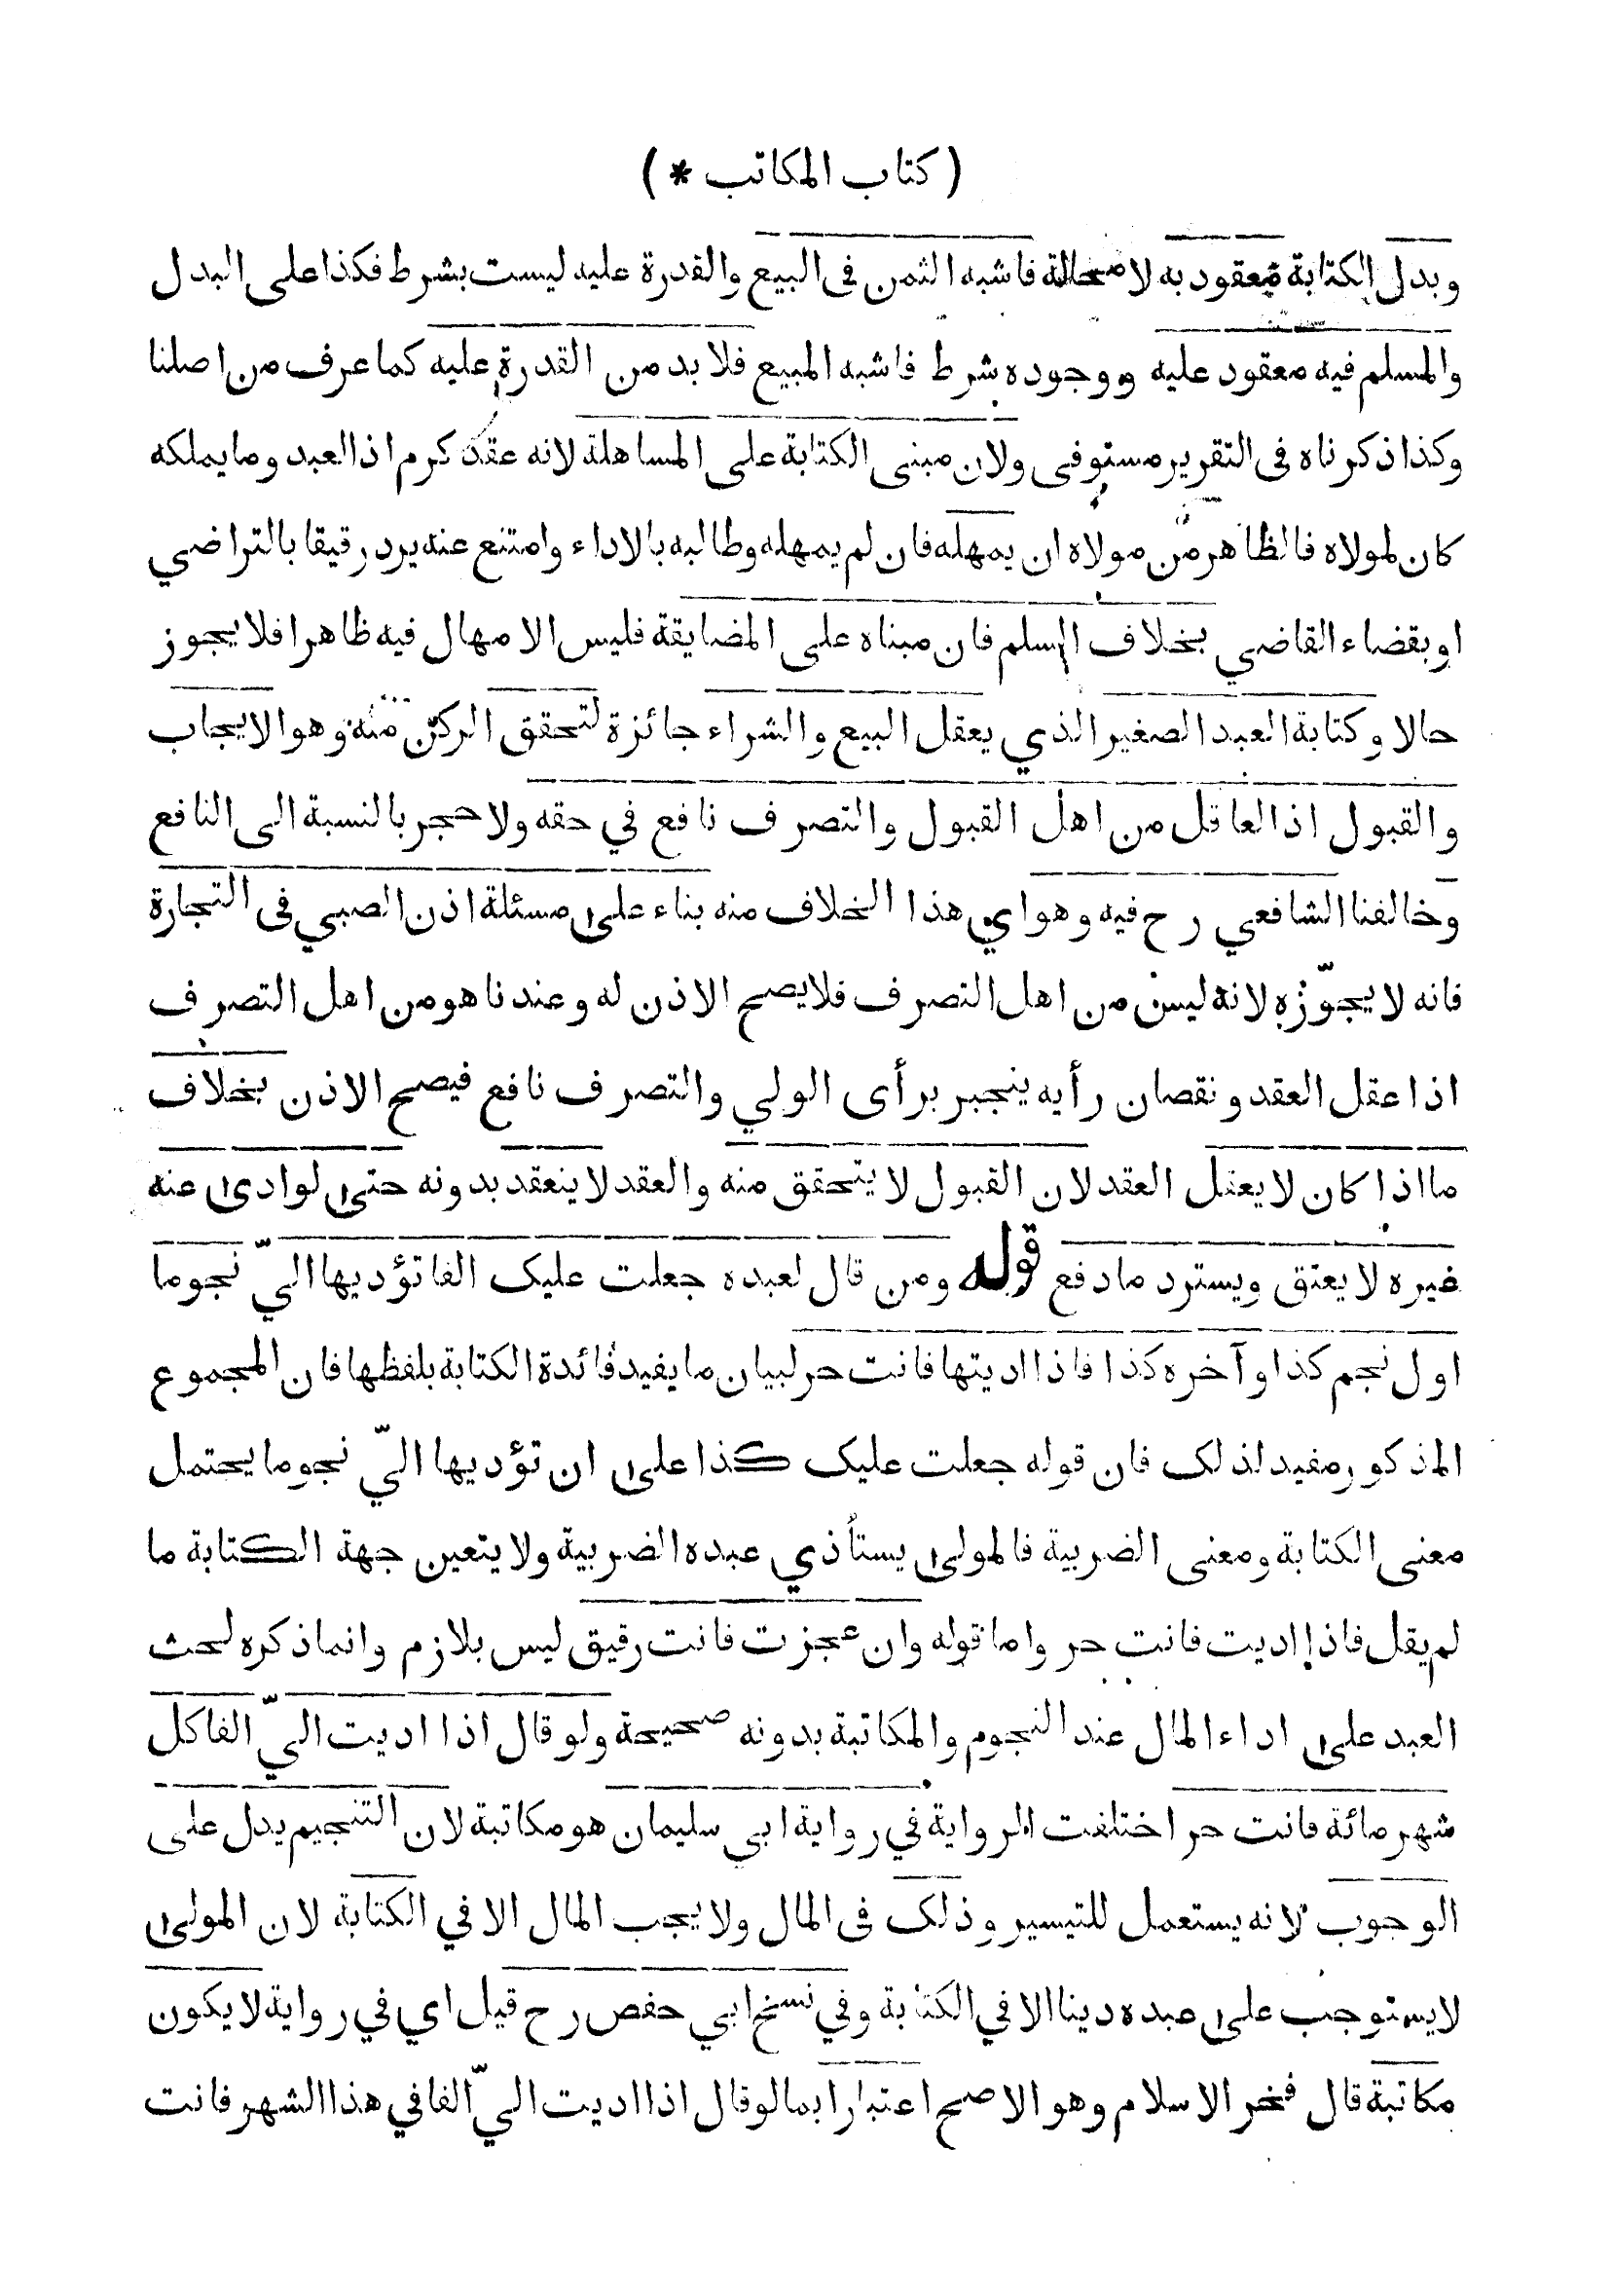 ( كتاب المكاتب * )
وبدل الكتابة معقود به لا محالة فاشبه الثمن فى البيع والقدرة عليه ليست بشرط فكذا على البدل
والمسلم فيه معقود عليه ووجوده شرط فاشبه المبيع فلا بد من القدرة عليه كما عرف من اصلنا
وكذا ذكرناه فى التقرير مستوفى ولان مبنى الكتابة على المساهلة لانه عقد كرم اذ العبد وما يملكه
كان لمولاه فالظاهر من مولاه ان يمهله فان لم يمهله وطالبه بالاداء وامتنع عنه يرد رقيقا بالتراضي
او بقضاء القاضي بخلاف السلم فان مبناه على المضايقة فليس الامهال فيه ظاهرا فلا يجوز
حالا وكتابة العبد الصغير الذي يعقل البيع والشراء جائزة لتحقق الركن منه وهو الايجاب
والقبول اذ العاقل من اهل القبول والتصرف نافع في حقه ولا حجر بالنسبة الى النافع
وخالفنا الشافعي رح فيه وهو اي هذا الخلاف منه بناء على مسئلة اذن الصبي فى التجارة
فانه لا يجوّزه لانه ليس من اهل التصرف فلا يصح الاذن له وعندنا هو من اهل التصرف
اذا عقل العقد ونقصان رأيه ينجبر برأى الولي والتصرف نافع فيصح الاذن بخلاف
ما اذا كان لا يعقل العقد لان القبول لا يتحقق منه والعقد لا ينعقد بدونه حتى لو ادى عنه
غيره لا يعتق ويسترد ما دفع قوله ومن قال لعبده جعلت عليك الفا تؤديها اليّ نجوما
اول نجم كذا وآخره كذا فاذا اديتها فانت حر لبيان ما يفيد فائدة الكتابة بلفظها فان المجموع
المذكور مفيد لذلك فان قوله جعلت عليك كذا على ان تؤديها اليّ نجوما يحتمل
معنى الكتابة ومعنى الضريبة فالمولى يستأذي عبده الضريبة ولا يتعين جهة الكتابة ما
لم يقل فاذا اديت فانت حر واما قوله وان عجزت فانت رقيق ليس بلازم وانما ذكره لحث
العبد على اداء المال عند النجوم والمكاتبة بدونه صحيحة ولو قال اذا اديت اليّ الفا كل
شهر مائة فانت حر اختلفت الرواية في رواية ابي سليمان هو مكاتبة لان التنجيم يدل على
الوجوب لانه يستعمل للتيسير وذلك فى المال ولا يجب المال الا في الكتابة لان المولى
لا يستوجب على عبده دينا الا في الكتابة وفي نسخ ابي حفص رح قيل اي في رواية لا يكون
مكاتبة قال فخر الاسلام وهو الاصح اعتبارا بما لو قال اذا اديت اليّ الفا في هذا الشهر فانت